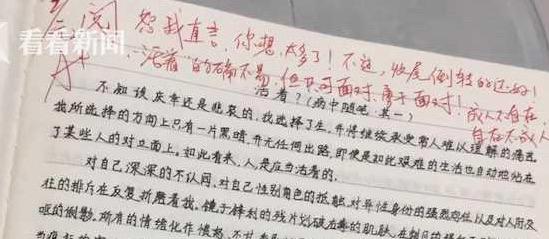 看看新闻
已阅 恕我直言,你想太多了!不过,收尾倒转的还好!
A+ “活着”的确不易,但只可面对,勇于面对!成人不自在,
自在不成人
活着?(病中随笔·其一)
不知该庆幸还是悲哀的,我选择了生,并得继续承受常人难以理解的痛苦
我所选择的方向上只有一片黑暗,并无任何出路,即使是如此艰难的生活也自动地站在
了某些人的对立面上。如此看来,人是应当活着的。
对自己深深的不认同,对自己性别角色的抵触,对异性身份的强烈向往以及对人际交
往的排斥在反复折磨着我,镜子锋利的残片划破
哑的倒影。所有的情绪化作愤怒